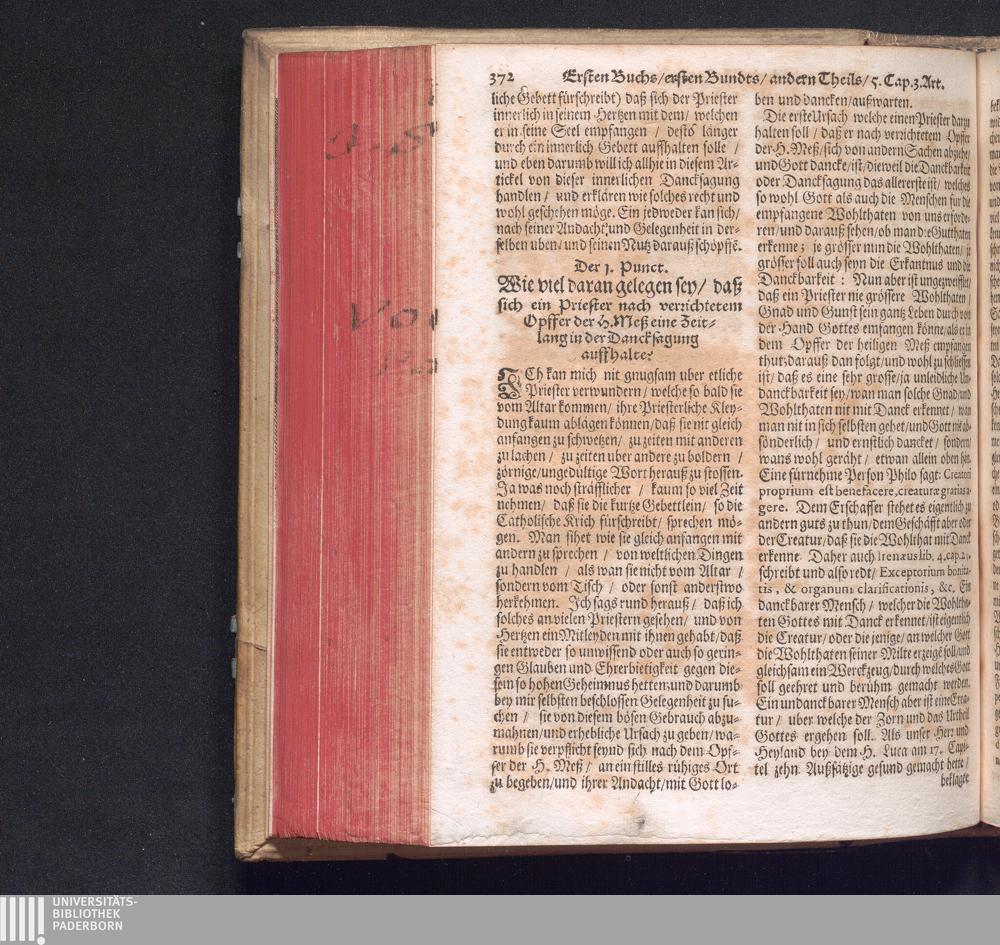 372 Ersten Buchs/ersten Bundts/andern Theils/5.Cap.3.Art.
liche Gebett fürschreibt) daß sich der Priester
innerlich in seinem Hertzen mit dem/ welchen
er in seine Seel empfangen / desto länger
durch ein innerlich Gebett auffhalten solle /
und eben darumb will ich allhie in diesem Ar-
tickel von dieser innerlichen Dancksagung
handlen / und erklären wie solches recht und
wohl geschehen möge. Ein jedweder kan sich/
nach seiner Andacht/und Gelegenheit in der-
selben uben/und seinen Nutz darauß schöpffē.
Der 1. Punct.
Wie viel daran gelegen sey/ daß
sich ein Priester nach verrichtetem
Opffer der H. Meß eine Zeit-
lang in der Dancksagung
auffhalte?
ICh kan mich nit gnugsam uber etliche
Priester verwundern/ welche so bald sie
vom Altar kommen/ ihre Priesterliche Kley-
dung kaum ablägen können/daß sie nit gleich
anfangen zu schwetzen/ zu zeiten mit anderen
zu lachen / zu zeiten uber andere zu boldern /
zörnige/ungedültige Wort herauß zu stossen.
Ja was noch sträfflicher / kaum so viel Zeit
nehmen/ daß sie die kurtze Gebettlein/ so die
Catholische Kirch fürschreibt/ sprechen mö-
gen. Man sihet wie sie gleich anfangen mit
andern zu sprechen / von weltlichen Dingen
zu handlen / als wan sie nicht vom Altar /
sondern vom Tisch / oder sonst anderstwo
herkehmen. Ich sags rund herauß/ daß ich
solches an vielen Priestern gesehen/ und von
Hertzen ein Mitleyden mit ihnen gehabt/daß
sie entweder so unwissend oder auch so gerin-
gen Glauben und Ehrerbietigkeit gegen die-
sem so hohen Geheimnus hetten; und darumb
bey mir selbsten beschlossen Gelegenheit zu su-
chen / sie von diesem bösen Gebrauch abzu-
mahnen/und erhebliche Ursach zu geben/wa-
rumb sie verpflicht seynd sich nach dem Opf-
fer der H. Meß/ an ein stilles rühiges Ort
zu begeben/und ihrer Andacht/mit Gott lo-
ben und dancken/außwarten.
Die erste Ursach welche einen Priester darzu
halten soll / daß er nach verrichtetem Opffer
der H. Meß/sich von andern Sachen abziehe/
und Gott dancke/ist/dieweil die Danckbarkeit
oder Dancksagung das allererste ist/ welches
so wohl Gott als auch die Menschen für die
empfangene Wohlthaten von uns erforde-
ren/und darauß sehen/ob man die Gutthaten
erkenne; je grösser nun die Wohlthaten/ je
grösser soll auch seyn die Erkantnus und die
Danckbarkeit : Nun aber ist ungezweifflet/
daß ein Priester nie grössere Wohlthaten /
Gnad und Gunst sein gantz Leben durch von
der Hand Gottes empfangen könne/als er in
dem Opffer der heiligen Meß empfangen
thut; darauß dan folgt/und wohl zu schliessen
ist/ daß es eine sehr grosse/ja unleidliche Un-
danckbarkeit sey/wan man solche Gnad und
Wohlthaten nit mit Danck erkennet/ wan
man nit in sich selbsten gehet/und Gott nit ab-
sönderlich / und ernstlich dancket / sondern
wans wohl geräht/ etwan allein oben hin.
Eine fürnehme Person Philo sagt: Creatori
proprium est benefacere, creaturæ gratias a-
gere. Dem Erschaffer stehet es eigentlich zu
andern guts zu thun/dem Geschäfft aber oder
der Creatur/daß sie die Wohlthat mit Danck
erkenne. Daher auch Irenæus lib. 4. cap. 21.
schreibt und also redt/ Exceptorium bonita-
tis, & organum clarificationis, &c. Ein
danckbarer Mensch / welcher die Wohltha-
ten Gottes mit Danck erkennet/ist eigentlich
die Creatur/ oder die jenige/an welcher Gott
die Wohlthaten seiner Milte erzeigē soll/und
gleichsam ein Werckzeug/durch welches Gott
soll geehret und berühm gemacht werden.
Ein undanckbarer Mensch aber ist eine Crea-
tur / uber welche der Zorn und das Urtheil
Gottes ergehen soll. Als unser Herr und
Heyland bey dem H. Luca am 17. Capi-
tel zehn Außsätzige gesund gemacht hette/
beklaget
UNIVERSITÄTS-
BIBLIOTHEK
PADERBORN